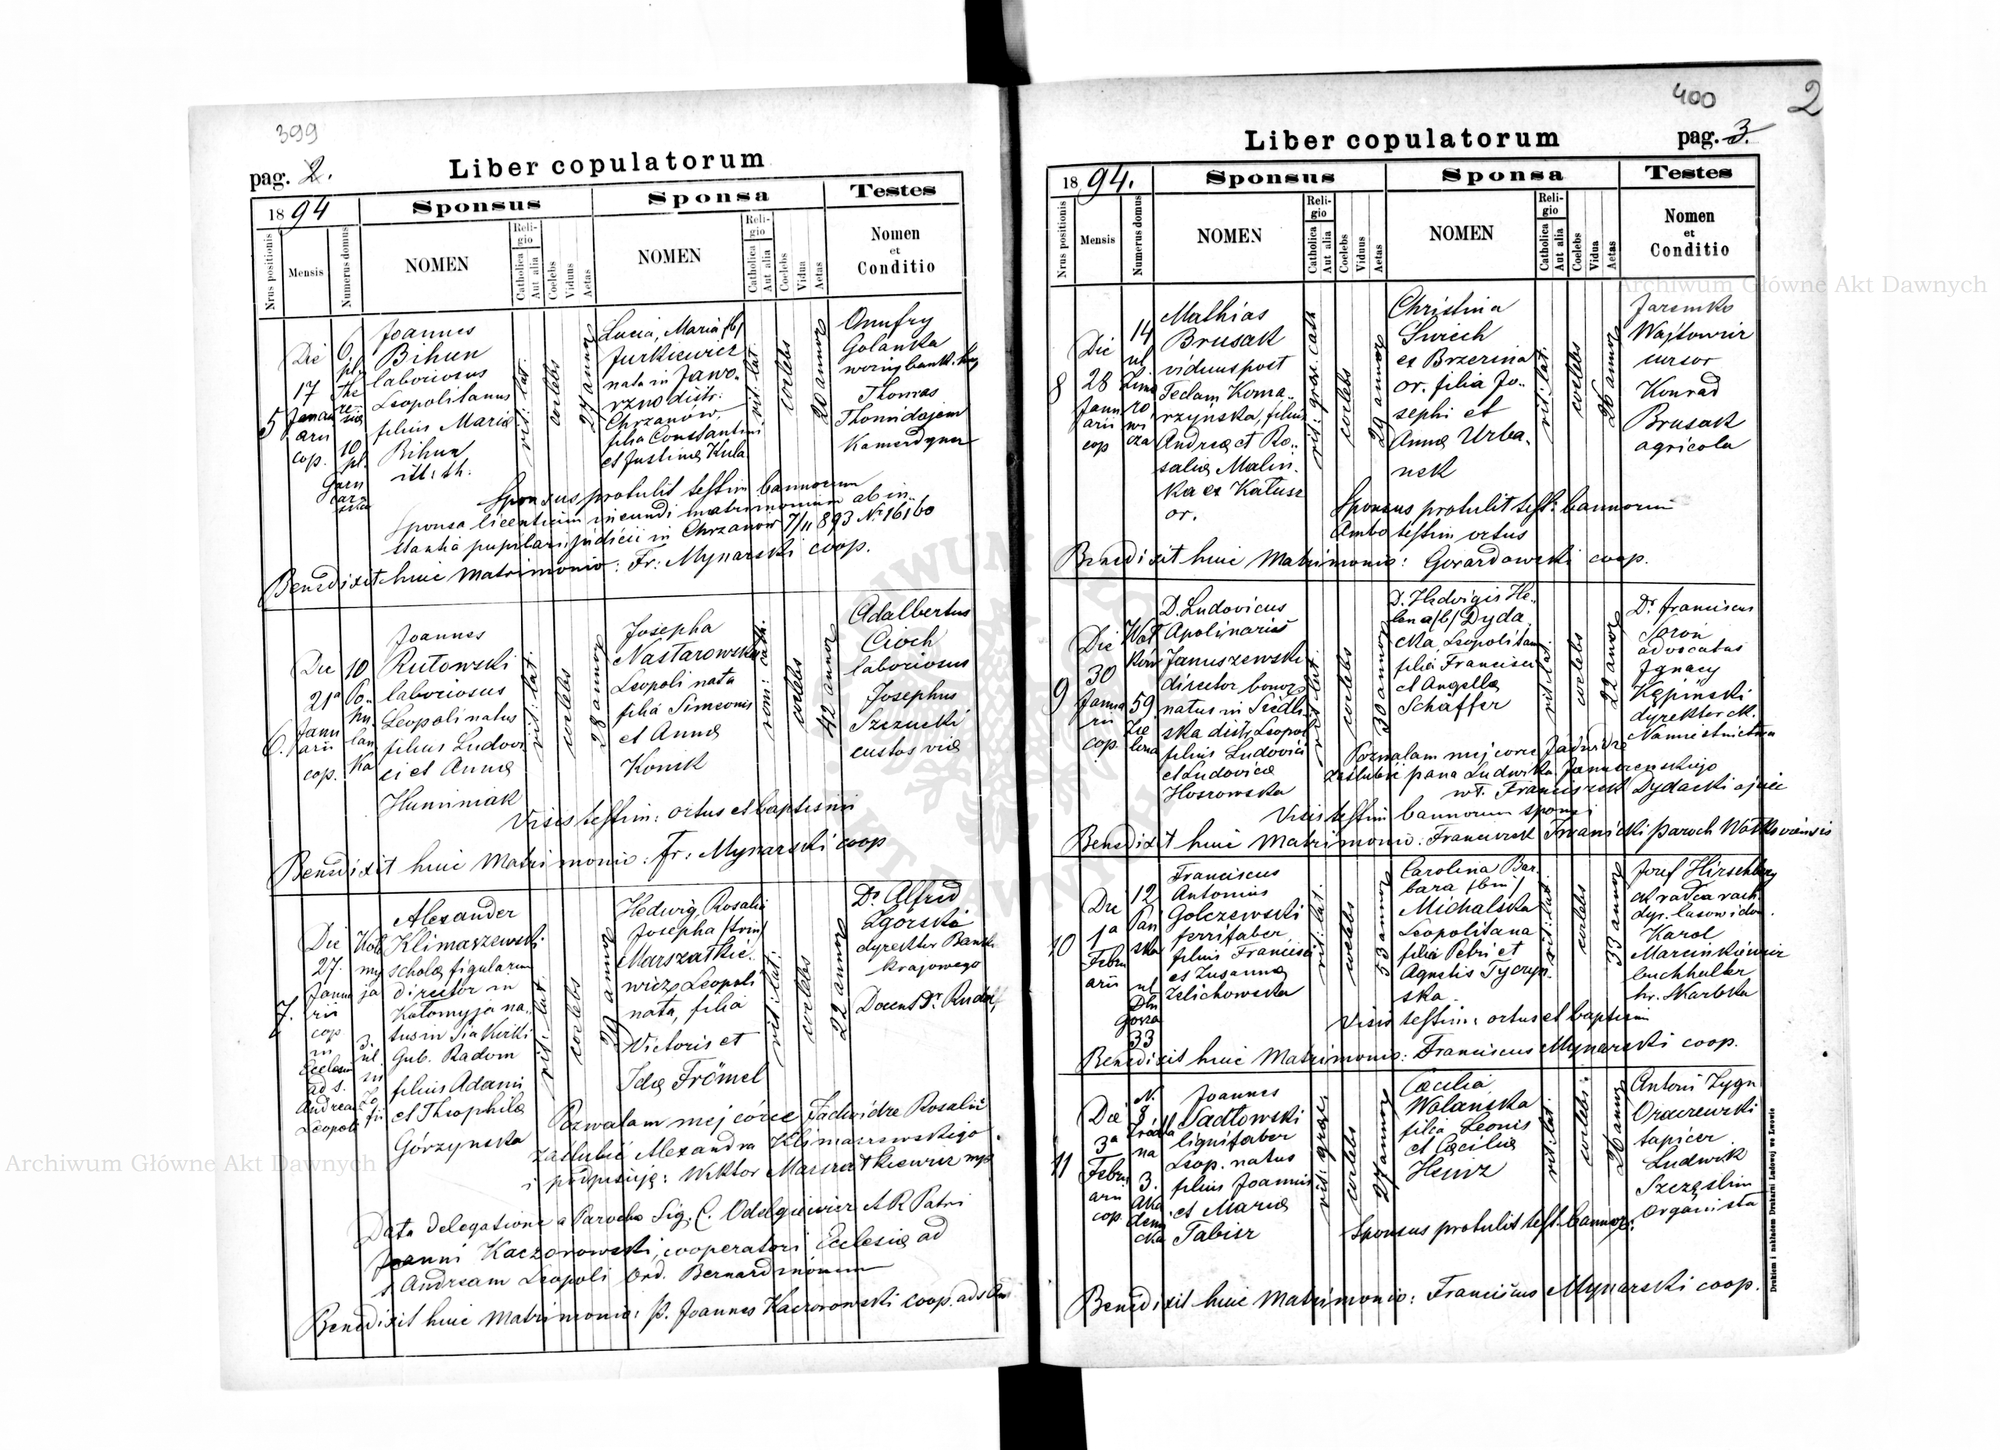 399
pag. 2.
Liber copulatorum
1894
Sponsus
Sponsa
Testes
Nrus positionis
Mensis
Numerus domus
NOMEN
Religio
Catholica
Aut alia
Coelebs
Viduus
Aetas
NOMEN
Religio
Catholica
Aut alia
Coelebs
Vidua
Aetas
Nomen
et
Conditio
5
Die
17
Januarii
cop.
Joannes
Bihun
laboriosus
Leopolitanus
filius Mariæ
Bihun
rit: lat.
coelebs
27 annor
Lucia, Maria /b/
Jurkiewicz
nata in Jawo-
rzno distr.
Chrzanów.
filia Constantini
et Justinæ Kula
rit: lat.
coelebs
20 annor
Onufry
Golanka
Thomas
Kamerdyner
Sponsus protulit testim bannorum
Sponsa licentiam ineundi matrimonium ab in-
stantia pupilari judicii in Chrzanów 7/11 893 N: 16160
Benedixit huic Matrimonio: Fr: Mynarski coop.
6.
Die
21ª
Janu
arii
cop.
10
Joannes
Rutowski
laboriosus
Leopoli natus
filius Ludovi
ci et Annæ
Huminiak
rit: lat:
coelebs
28 annor
Josepha
Nastarowska
Leopoli nata
filia Simeonis
et Annæ
Konik
rom: cath.
coelebs
42 annor
Adalbertus
Cioch
laboriosus
Josephus
Szczucki
custos viæ
Visis testim: ortus et baptismi
Benedixit huic Matrimonio: Fr: Mynarski coop
7.
Die
27.
Janua
rii
cop
in
Ecclesia
ad S.
Andream
Leopoli
Koło
my
ja
3.
ul.
Zo
fii
Alexander
Klimaszewski
scholæ figularum
director in
Kołomyja na-
tus in Siakierki
Gub. Radom
filius Adami
et Theophilæ
Górzyńska
rit: lat
coelebs
29 annor
Hedwig, Rosalia
Josepha /trin/
Marszałkie-
wicz Leopoli
nata, filia
Victoris et
Idæ Frömel
rit: lat:
coelebs
22 annor
Dr Alfred
Zgórski
dyrektor Banku
krajowego
Docent Dr. Rudolf
Pozwalam mej córce Jadwidze Rosalii
zaślubić Alexandra Klimaszewskiego
i podpisuję: Wiktor Marszałkiewicz mp
Data delegatione a Parocho Sig. C. Odelgiewicz AR Patri
Joanni Kaczorowski, cooperatori Ecclesiæ ad
s Andream Leopoli Ord. Bernardinorum
Benedixit huic Matrimonio: p. Joannes Kaczorowski coop. ad s And
400
2
Liber copulatorum
pag. 3.
1894.
Sponsus
Sponsa
Testes
Nrus positionis
Mensis
Numerus domus
NOMEN
Religio
Catholica
Aut alia
Coelebs
Viduus
Aetas
NOMEN
Religio
Catholica
Aut alia
Coelebs
Vidua
Aetas
Nomen
et
Conditio
8
Die
28
Janu
arii
cop
14
ul
Zimo
ro
wi
cza
Mathias
Brusak
viduus post
Teclam Koma-
rzyńska, filius
Andreæ et Ro-
saliæ Malin-
ka ex Kałusz
or.
rit: græc. cath
coelebs
29 annor
Christina
Swiech
ex Brzezina
or. filia Jo-
sephi et
Annæ Urba-
nek
rit: lat:
coelebs
26 annor
Jaremko
Wajtowicz
cursor
Konrad
Brusak
agricola
Sponsus protulit test: bannorum
Ambo testim ortus
Benedixit huic Matrimonio: Gorardowski coop.
9
Die
30
Janua
rii
cop.
59
Zie
lona
D. Ludovicus
Apolinaris
Januszewski
director bonor
natus in Siedli
ska distr Leopol
filius Ludovici
et Ludovicæ
Hoszowska
rit: lat:
coelebs
30 annor
D. Hedvigis He-
lena /b/ Dyda
cka, Leopolitana
filia Francisci
et Angelæ
Schäffer
rit: lat.
coelebs
22 annor
Dr Franciscus
advocatus
Ignacy
Kępiński
dyrektor ck.
Namiestnictwa
Pozwalam mej corce Jadwidze
zaślubić pana Ludwika Januszewskiego
wł. Franciszek Dydacki ojciec
Visis testim bannorum sponsi
Benedixit huic Matrimonio:
10
Die
1a
Febru
arii
12
Pań
ska
ul
33
Franciscus
Antonius
Golczewski
ferrifaber
filius Francisci
et Zusannæ
Zelichowska
rit: lat.
coelebs
53 annor
Carolina Bar-
bara /bin/
Michalska
Leopolitana
filia Petri et
Agnetis Tyczyń
ska
rit: lat:
coelebs
33 annor
Josef Hirschberg
ck radca rach.
Karol
Marcinkiewicz
buchhalter
hr. Skarbka
Visis testim: ortus et baptismi
Benedixit huic Matrimonio: Franciscus Mynarski coop.
11
Die
3a
Febru
arii
cop.
N.
8
3.
Aka
demi
cka
Joannes
Sadłowski
lignifaber
Leop. natus
filius Joannis
et Mariæ
Tabisz
rit: græc
coelebs
27 annor
Cæcilia
Wolańska
filia Leonis
et Cæciliæ
Heinz
rit: lat:
coelebs
26 annor
Antoni Zygm
Oraczewski
tapicer
Ludwik
Szczęslin
Organista
Sponsus protulit test. bannor.
Benedixit huic Matrimonio: Franciscus Mynarski coop.
Drukiem i nakładem Drukarni Ludowej we Lwowie
Archiwum Główne Akt Dawnych
Archiwum Główne Akt Dawnych